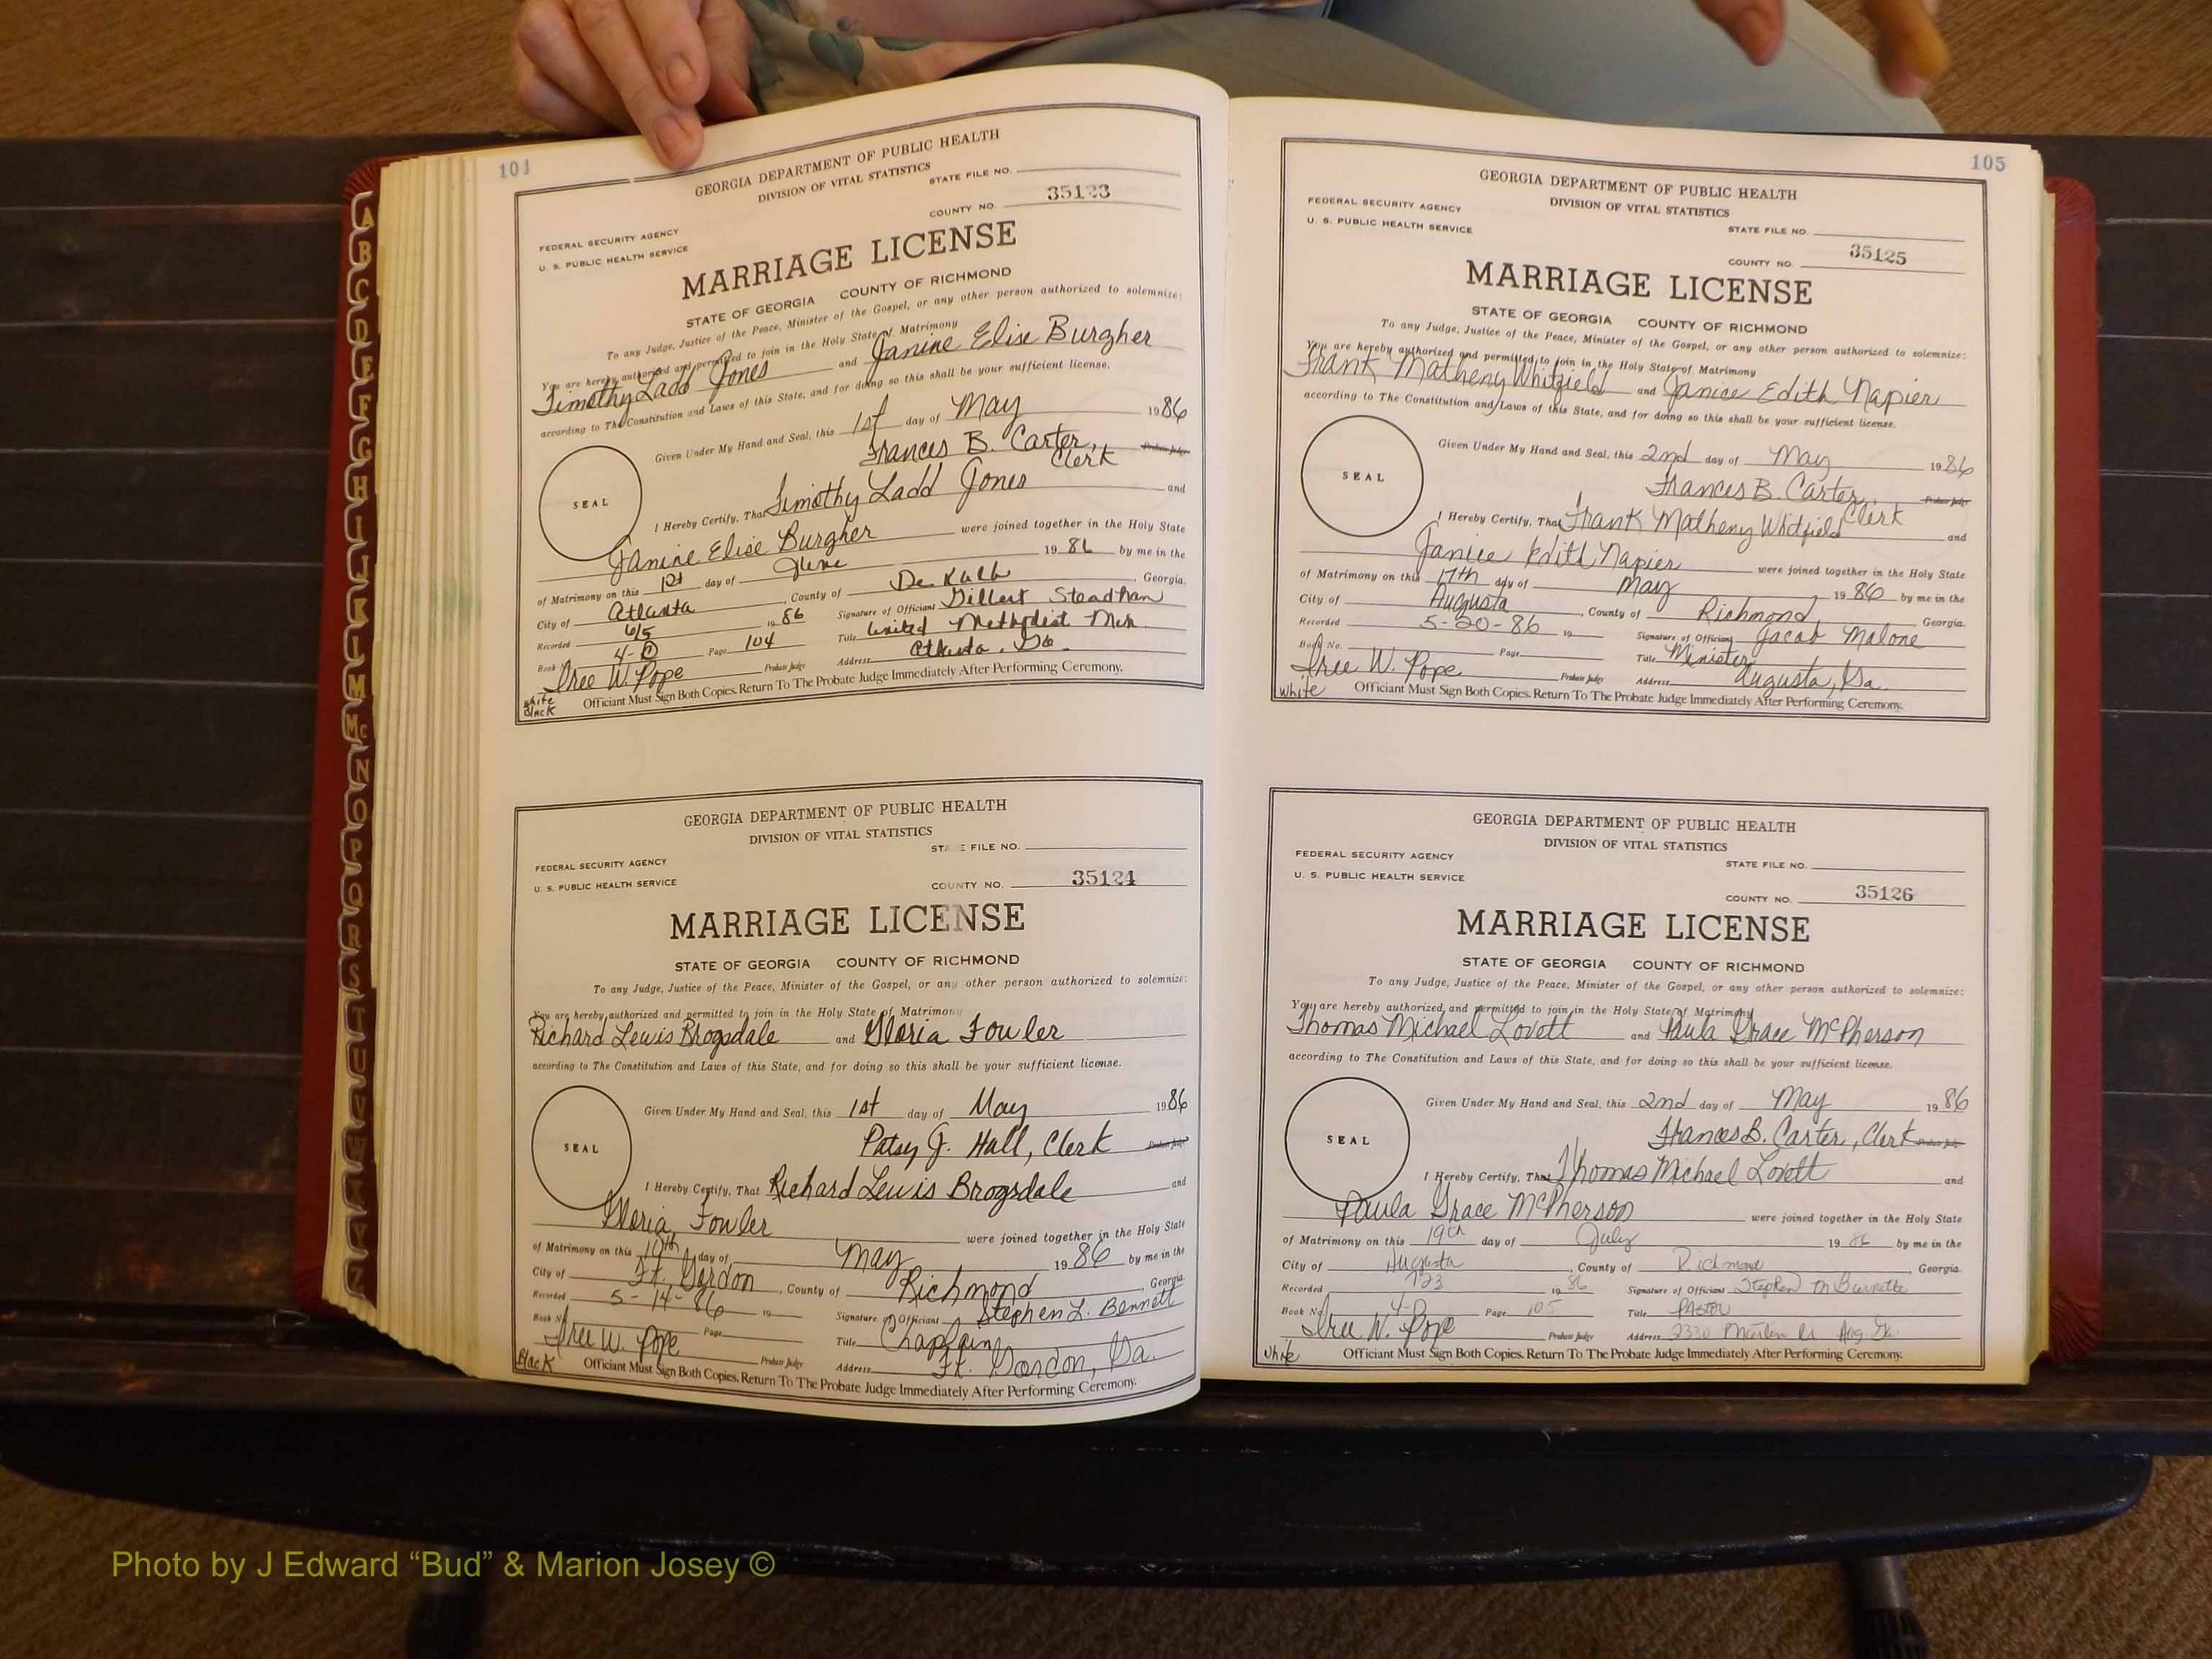 104
GEORGIA DEPARTMENT OF PUBLIC HEALTH
DIVISION OF VITAL STATISTICS
STATE FILE NO.
COUNTY NO. 35123
FEDERAL SECURITY AGENCY
U. S. PUBLIC HEALTH SERVICE
MARRIAGE LICENSE
STATE OF GEORGIA COUNTY OF RICHMOND
To any Judge, Justice of the Peace, Minister of the Gospel, or any other person authorized to solemnize:
You are hereby authorized and permitted to join in the Holy State of Matrimony
Timothy Ladd Jones and Janine Elise Burgher
according to The Constitution and Laws of this State, and for doing so this shall be your sufficient license.
Given Under My Hand and Seal, this 1st day of May 1986
Frances B. Carter, Probate Judge
Clerk
SEAL
I Hereby Certify, That Timothy Ladd Jones and
Janine Elise Burgher were joined together in the Holy State
of Matrimony on this 1st day of June 1986 by me in the
City of Atlanta, County of De Kalb, Georgia.
Recorded 6/5 1986 Signature of Officiant Gilbert Steadham
Book 4-D Page 104 Title United Methodist Min.
Iree W. Pope Probate Judge Address Atlanta, Ga.
White
Black
Officiant Must Sign Both Copies. Return To The Probate Judge Immediately After Performing Ceremony.
GEORGIA DEPARTMENT OF PUBLIC HEALTH
DIVISION OF VITAL STATISTICS
STATE FILE NO.
FEDERAL SECURITY AGENCY
U. S. PUBLIC HEALTH SERVICE
COUNTY NO. 35124
MARRIAGE LICENSE
STATE OF GEORGIA COUNTY OF RICHMOND
To any Judge, Justice of the Peace, Minister of the Gospel, or any other person authorized to solemnize:
You are hereby authorized and permitted to join in the Holy State of Matrimony
Richard Lewis Brogsdale and Gloria Fowler
according to The Constitution and Laws of this State, and for doing so this shall be your sufficient license.
Given Under My Hand and Seal, this 1st day of May 1986
Patsy J. Hall, Clerk Probate Judge
SEAL
I Hereby Certify, That Richard Lewis Brogsdale and
Gloria Fowler were joined together in the Holy State
of Matrimony on this 10th day of May 1986 by me in the
City of Ft. Gordon, County of Richmond, Georgia.
Recorded 5-14-86 19 Signature of Officiant Stephen L. Bennett
Book No. Page Title Chaplain
Iree W. Pope Probate Judge Address Ft. Gordon, Ga.
Black
Officiant Must Sign Both Copies. Return To The Probate Judge Immediately After Performing Ceremony.
105
GEORGIA DEPARTMENT OF PUBLIC HEALTH
DIVISION OF VITAL STATISTICS
FEDERAL SECURITY AGENCY
U. S. PUBLIC HEALTH SERVICE
STATE FILE NO.
COUNTY NO. 35125
MARRIAGE LICENSE
STATE OF GEORGIA COUNTY OF RICHMOND
To any Judge, Justice of the Peace, Minister of the Gospel, or any other person authorized to solemnize:
You are hereby authorized and permitted to join in the Holy State of Matrimony
Frank Matheny Whitfield and Janice Edith Napier
according to The Constitution and Laws of this State, and for doing so this shall be your sufficient license.
Given Under My Hand and Seal, this 2nd day of May 1986
Frances B. Carter, Probate Judge
Clerk
SEAL
I Hereby Certify, That Frank Matheny Whitfield and
Janice Edith Napier were joined together in the Holy State
of Matrimony on this 17th day of May 1986 by me in the
City of Augusta, County of Richmond, Georgia.
Recorded 5-20-86 19 Signature of Officiant Jacob Malone
Book No. Page Title Minister
Iree W. Pope Probate Judge Address Augusta, Ga.
White
Officiant Must Sign Both Copies. Return To The Probate Judge Immediately After Performing Ceremony.
GEORGIA DEPARTMENT OF PUBLIC HEALTH
DIVISION OF VITAL STATISTICS
FEDERAL SECURITY AGENCY
U. S. PUBLIC HEALTH SERVICE
STATE FILE NO.
COUNTY NO. 35126
MARRIAGE LICENSE
STATE OF GEORGIA COUNTY OF RICHMOND
To any Judge, Justice of the Peace, Minister of the Gospel, or any other person authorized to solemnize:
You are hereby authorized and permitted to join in the Holy State of Matrimony
Thomas Michael Lovett and Paula Grace McPherson
according to The Constitution and Laws of this State, and for doing so this shall be your sufficient license.
Given Under My Hand and Seal, this 2nd day of May 1986
Frances B. Carter, Clerk Probate Judge
SEAL
I Hereby Certify, That Thomas Michael Lovett and
Paula Grace McPherson were joined together in the Holy State
of Matrimony on this 19th day of July 1986 by me in the
City of Augusta, County of Richmond, Georgia.
Recorded 7 23 1986 Signature of Officiant Stephen M Burnette
Book No. 4- Page 105 Title Pastor
Iree W. Pope Probate Judge Address 2330 Aug Ga.
White
Officiant Must Sign Both Copies. Return To The Probate Judge Immediately After Performing Ceremony.
A
B
C
D
E
F
G
H
I
J
K
L
M
Mc
N
O
P
Q
R
S
T
U
V
W
X
Y
Z
Photo by J Edward “Bud” & Marion Josey ©